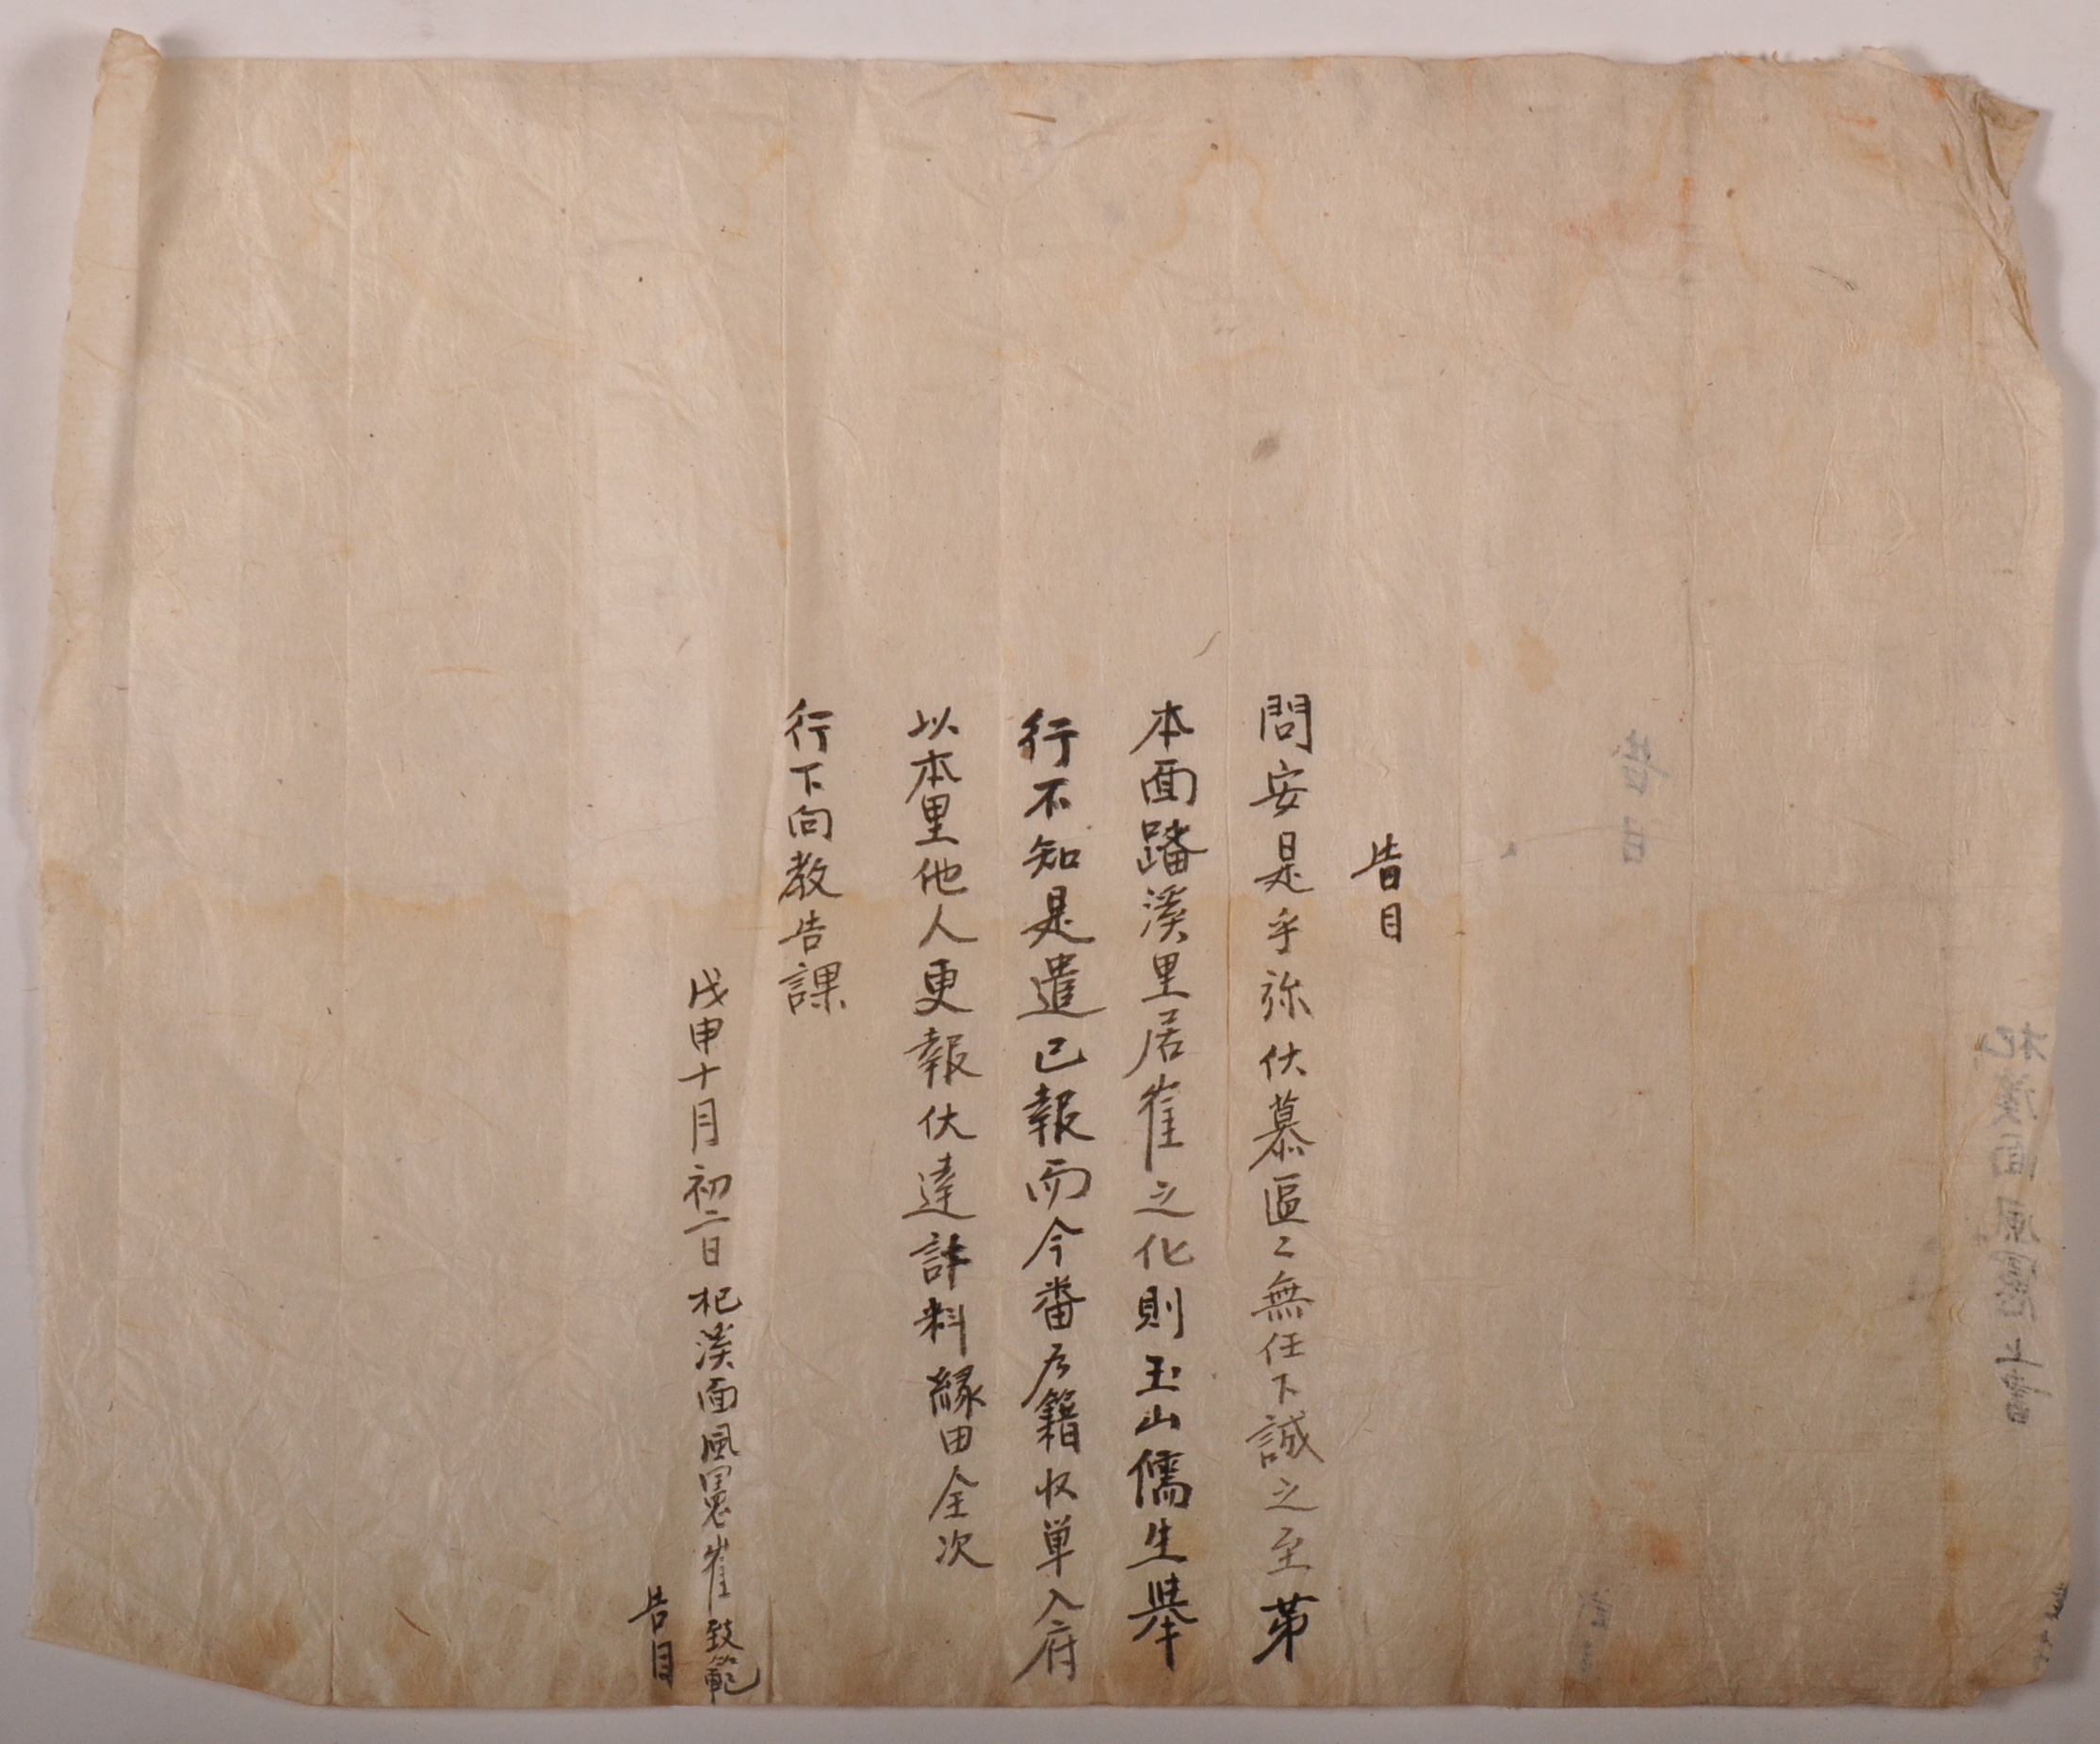 告目
問安是乎弥伏慕區〻無任下誠之至第
本面蹯溪里居崔之化則玉山儒生擧
行不知是遣已報而今番戶籍收单入府
以本里他人更報伏達計料緣由仝次
行下向教告課
戊申十月初二日杞溪面風憲崔致範
告目
告目
杞溪面風憲上書